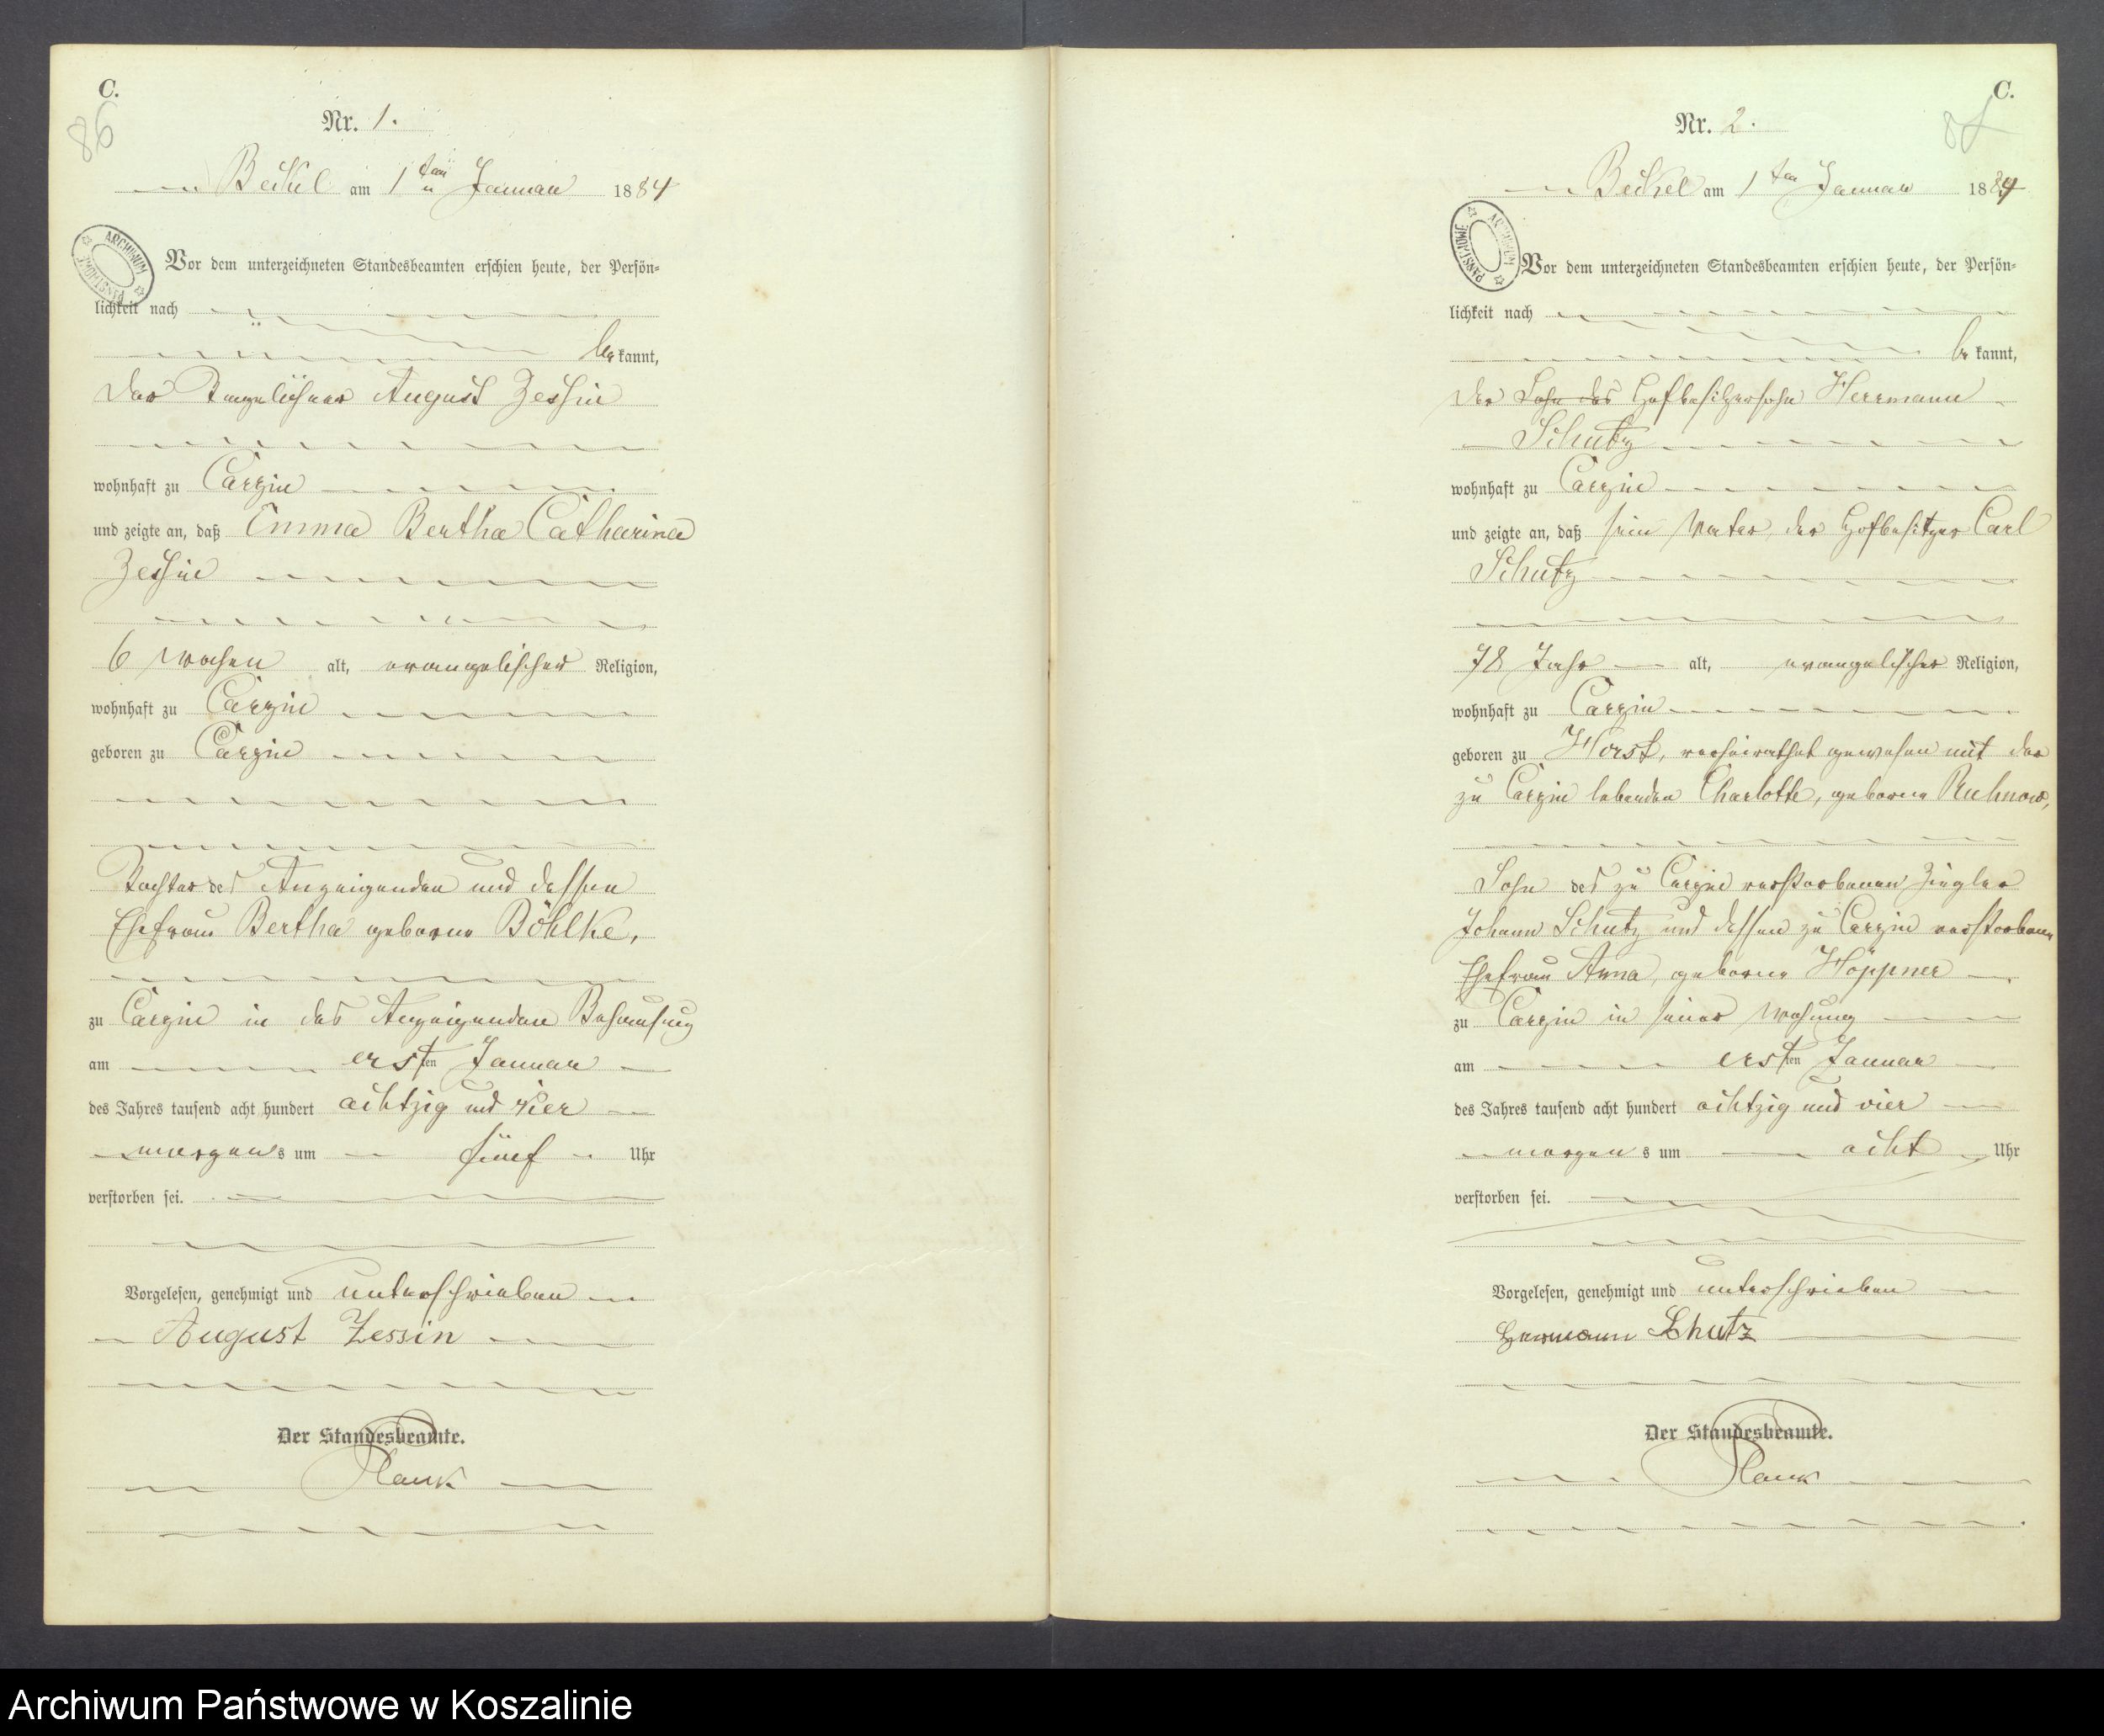 C.
86
Nr. 1.
Beckel am 1ten Januar 1884
ARCHIWUM PAŃSTWOWE
Vor dem unterzeichneten Standesbeamten erschien heute, der Persön-
lichkeit nach
be kannt,
der Tagelöhner August Zessin
wohnhaft zu Carzin
und zeigte an, daß Emma Bertha Catharina
Zessin
6 Wochen alt, evangelischer Religion,
wohnhaft zu Carzin
geboren zu Carzin
Tochter des Anzeigenden und dessen
Ehefrau Bertha geborne Böhlke,
zu Carzin in des Anzeigenden Behausung
am ersten Januar
des Jahres tausend acht hundert achtzig und vier
morgens um fünf Uhr
verstorben sei.
Vorgelesen, genehmigt und unterschrieben
August Zessin
Der Standesbeamte.
C.
Nr. 2.
Beckel am 1ten Januar 1884
ARCHIWUM PAŃSTWOWE
Vor dem unterzeichneten Standesbeamten erschien heute, der Persön-
lichkeit nach
be kannt,
der Sohn des Hofbesitzersohn Herrmann
Schutz
wohnhaft zu Carzin
und zeigte an, daß sein Vater, der Hofbesitzer Carl
Schutz
78 Jahr alt, evangelischer Religion,
wohnhaft zu Carzin
geboren zu Horst, verheirathet gewesen mit der
zu Carzin lebenden Charlotte, geborne Ruhnow,
Sohn des zu Carzin verstorbenen Ziegler
Johann Schutz und dessen zu Carzin verstorbenen
Ehefrau Anna, geborne Höppner
zu Carzin in seiner Wohnung
am ersten Januar
des Jahres tausend acht hundert achtzig und vier
morgens um acht Uhr
verstorben sei.
Vorgelesen, genehmigt und unterschrieben
Hermann Schutz
Der Standesbeamte.
Archiwum Państwowe w Koszalinie